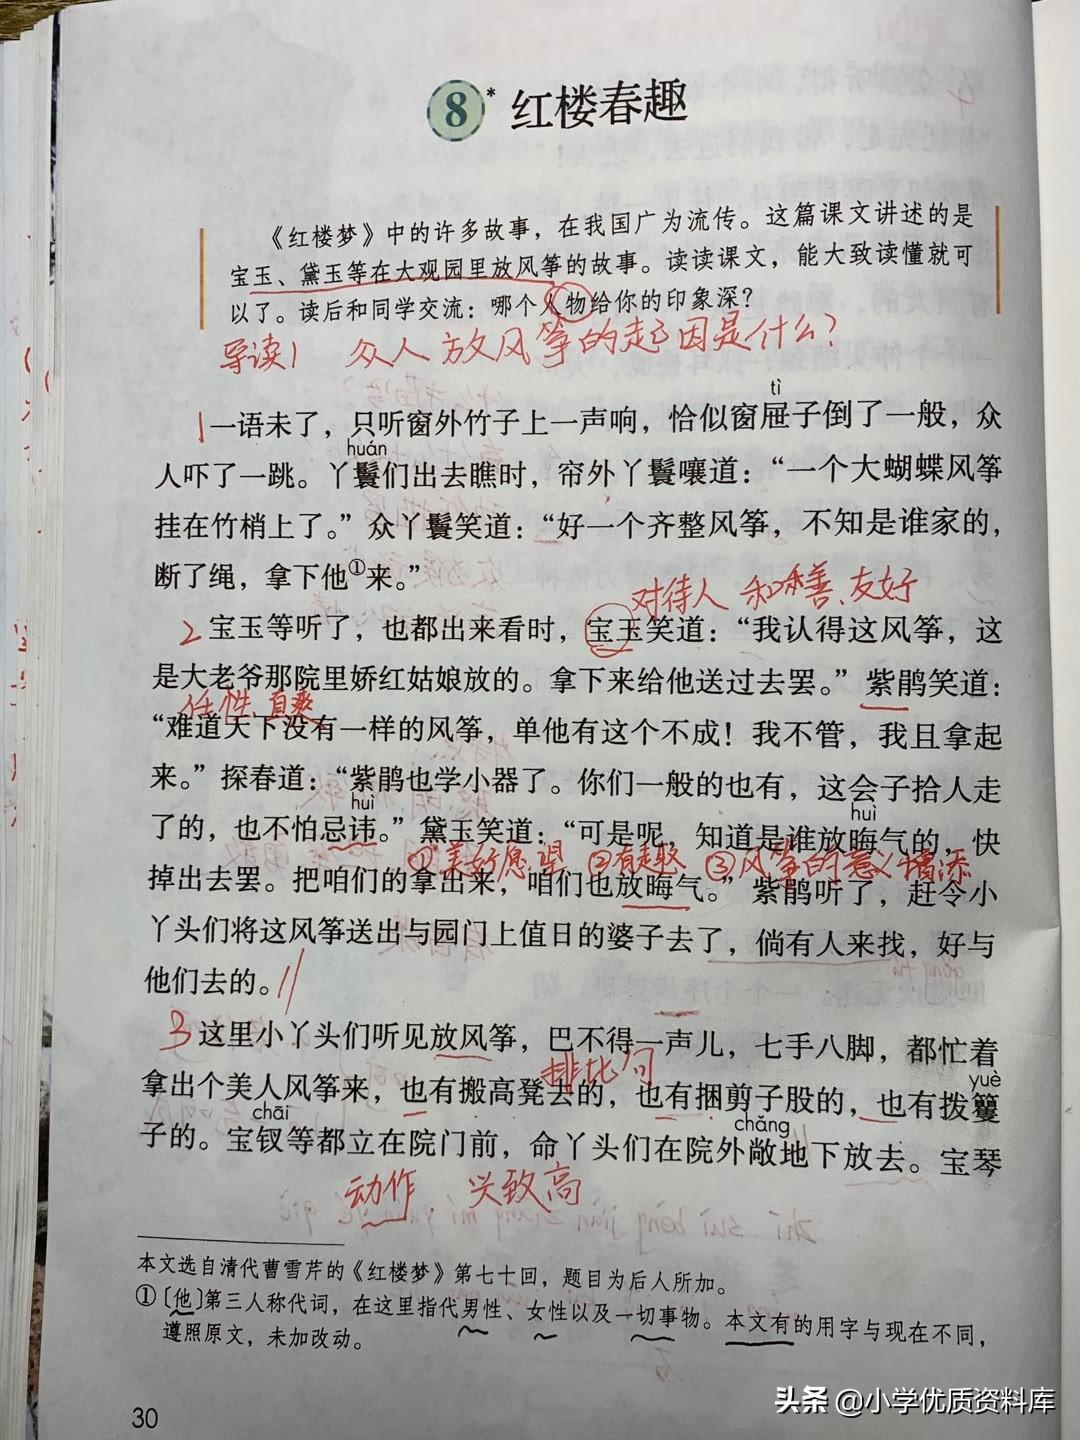 8* 红楼春趣
《红楼梦》中的许多故事，在我国广为流传。这篇课文讲述的是
宝玉、黛玉等在大观园里放风筝的故事。读读课文，能大致读懂就可
以了。读后和同学交流：哪个人物给你的印象深？
导读1 众人放风筝的起因是什么？
tì
1 一语未了，只听窗外竹子上一声响，恰似窗屉子倒了一般，众
huán
人吓了一跳。丫鬟们出去瞧时，帘外丫鬟嚷道：“一个大蝴蝶风筝
挂在竹梢上了。”众丫鬟笑道：“好一个齐整风筝，不知是谁家的，
断了绳，拿下他①来。”
对待人 和善、友好
2 宝玉等听了，也都出来看时，宝玉笑道：“我认得这风筝，这
是大老爷那院里娇红姑娘放的。拿下来给他送过去罢。”紫鹃笑道：
任性、直爽
“难道天下没有一样的风筝，单他有这个不成！我不管，我且拿起
来。”探春道：“紫鹃也学小器了。你们一般的也有，这会子拾人走
huì huì
了的，也不怕忌讳。”黛玉笑道：“可是呢，知道是谁放晦气的，快
①美好愿望 ②有趣 ③风筝的意义增添
掉出去罢。把咱们的拿出来，咱们也放晦气。”紫鹃听了，赶令小
丫头们将这风筝送出与园门上值日的婆子去了，倘有人来找，好与
他们去的。
3 这里小丫头们听见放风筝，巴不得一声儿，七手八脚，都忙着
排比句
拿出个美人风筝来，也有搬高凳去的，也有捆剪子股的，也有拨籰
yuè
chāi chǎng
子的。宝钗等都立在院门前，命丫头们在院外敞地下放去。宝琴
动作 兴致高
本文选自清代曹雪芹的《红楼梦》第七十回，题目为后人所加。
①〔他〕第三人称代词，在这里指代男性、女性以及一切事物。本文有的用字与现在不同，
遵照原文，未加改动。
30
头条 @小学优质资料库